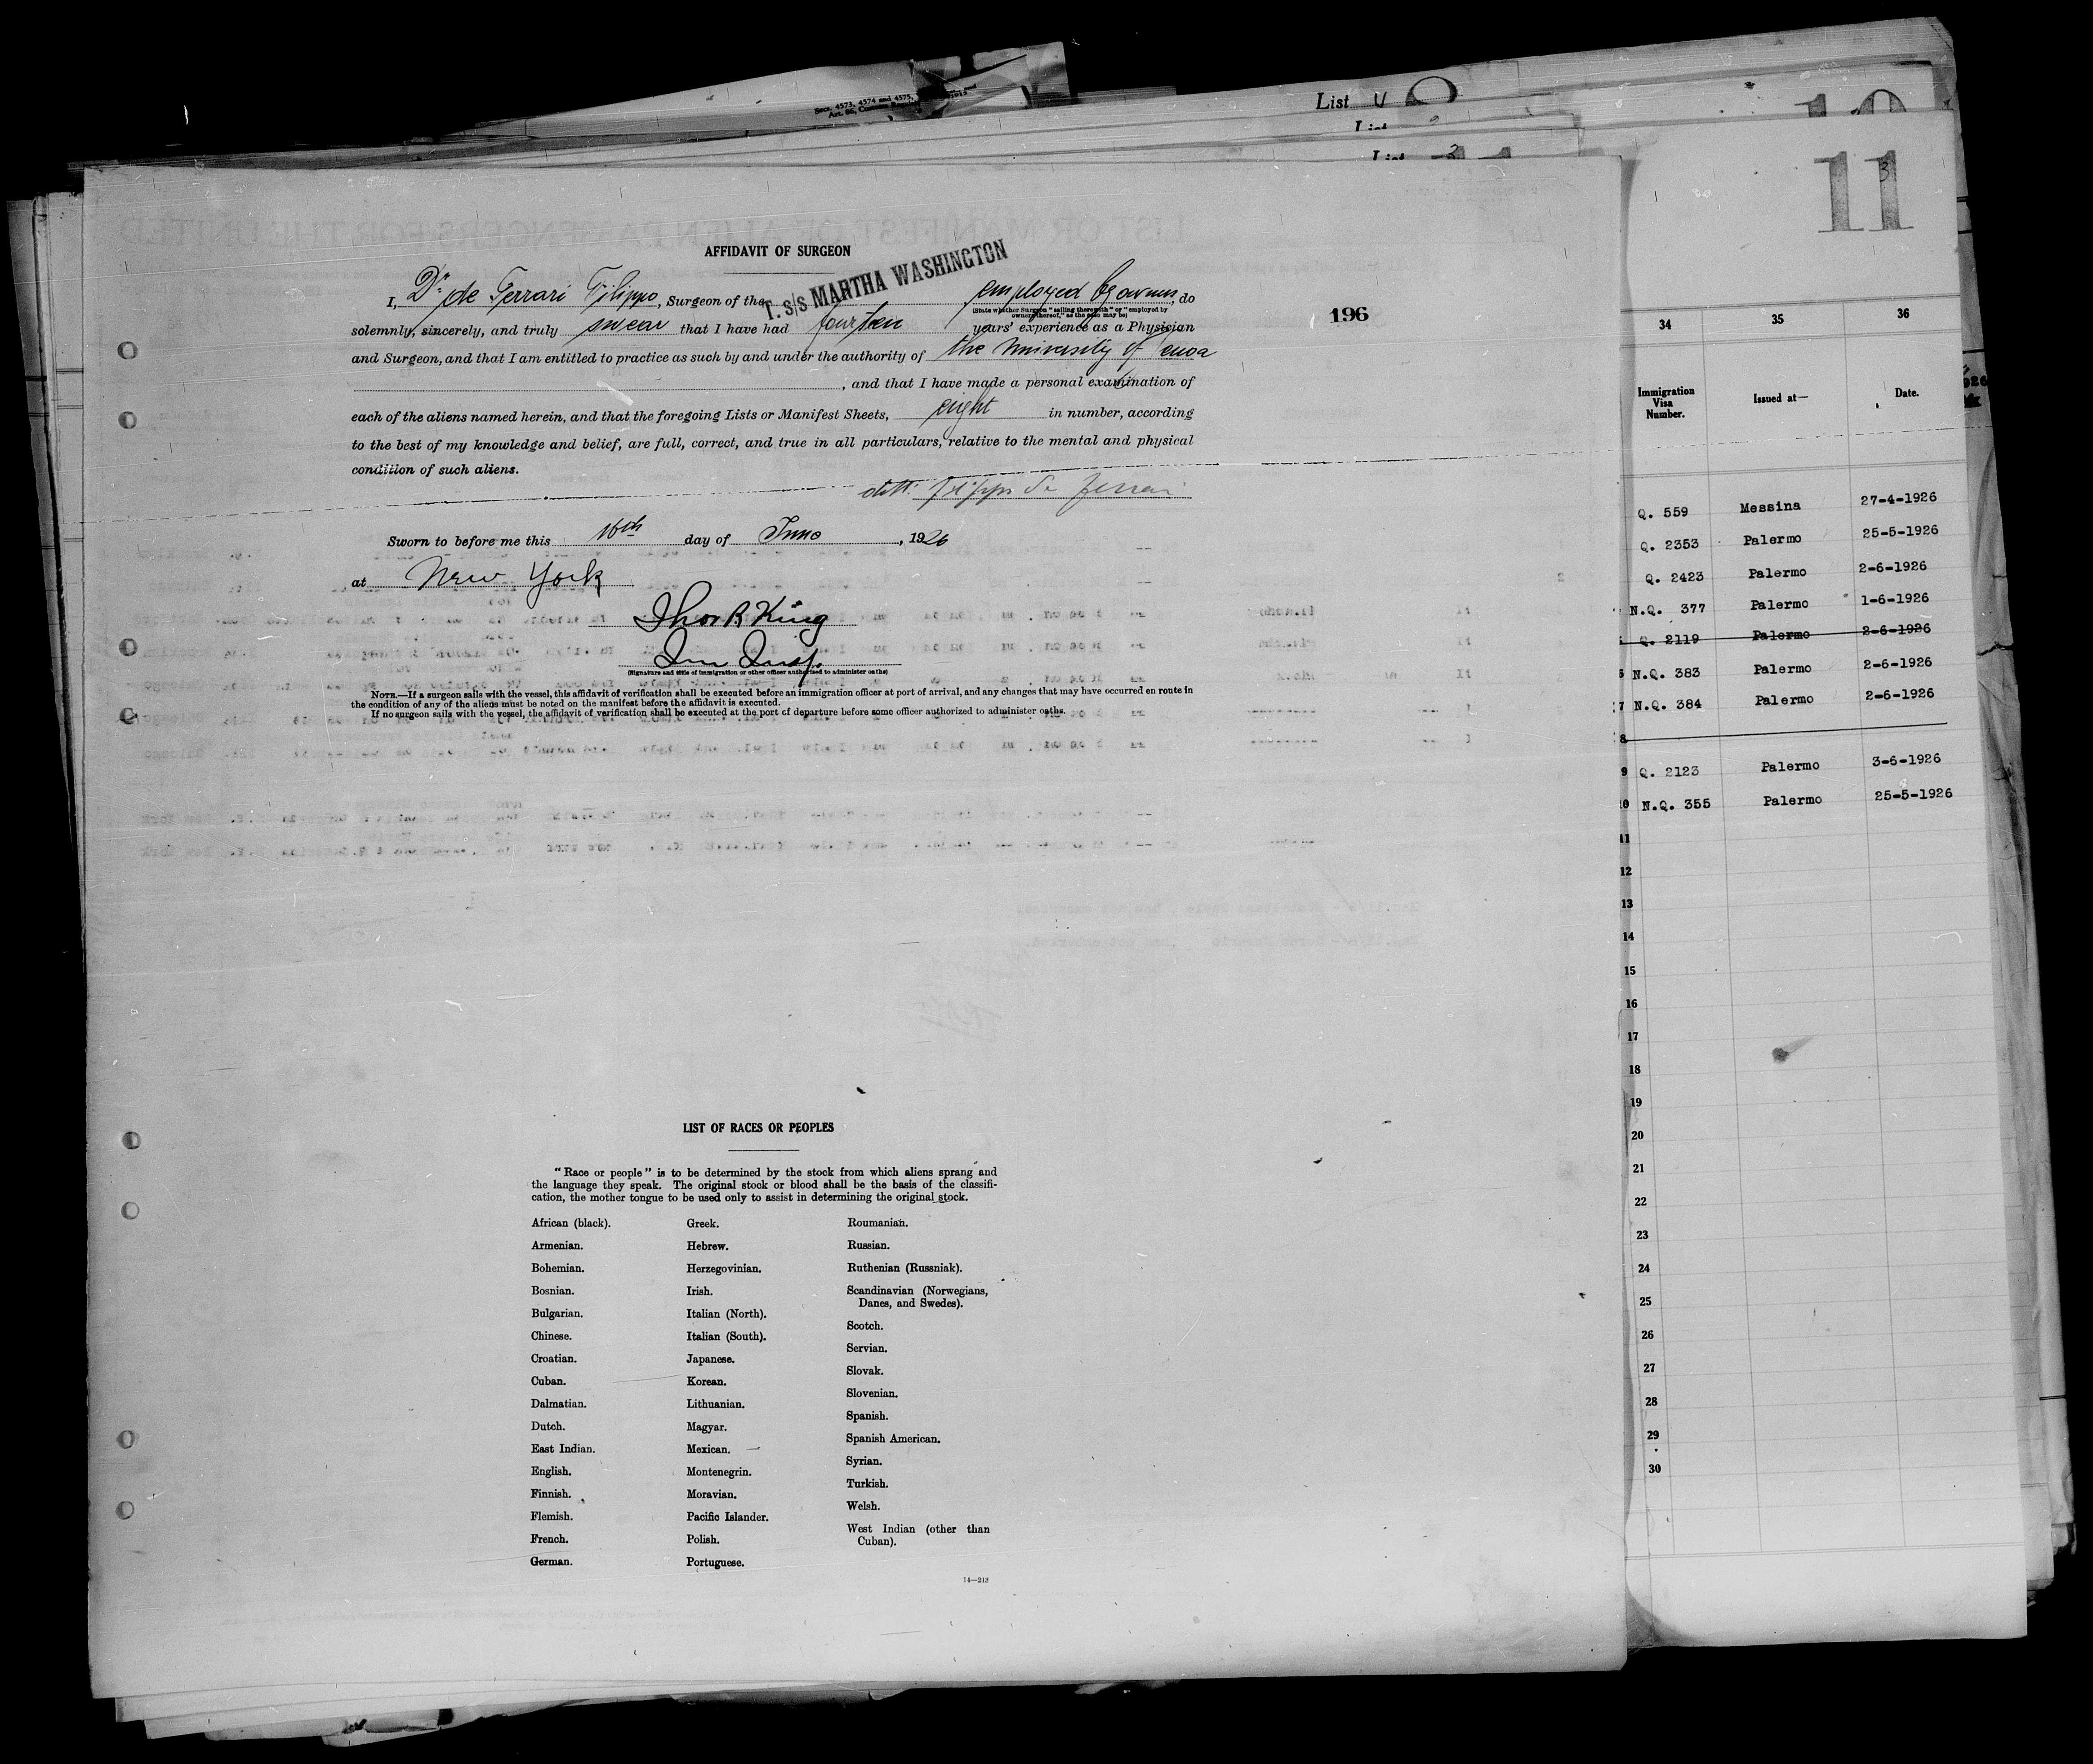 Secs. 4573, 4574 and 4575,
List U
List 3
11
3
AFFIDAVIT OF SURGEON
I, Dr. de Ferrari Filippo, Surgeon of the T. s/s MARTHA WASHINGTON employed by owners, do
(State whether Surgeon "sailing therewith" or "employed by
owners thereof," as the case may be)
solemnly, sincerely, and truly swear that I have had fourteen years' experience as a Physician
and Surgeon, and that I am entitled to practice as such by and under the authority of the University of Genoa
, and that I have made a personal examination of
each of the aliens named herein, and that the foregoing Lists or Manifest Sheets, eight in number, according
to the best of my knowledge and belief, are full, correct, and true in all particulars, relative to the mental and physical
condition of such aliens.
dott. Filippo de Ferrari
Sworn to before me this 16th day of June, 1926
at New York
Thos R King
Imm Insp.
(Signature and title of immigration or other officer authorized to administer oaths)
NOTE.—If a surgeon sails with the vessel, this affidavit of verification shall be executed before an immigration officer at port of arrival, and any changes that may have occurred en route in
the condition of any of the aliens must be noted on the manifest before the affidavit is executed.
If no surgeon sails with the vessel, the affidavit of verification shall be executed at the port of departure before some officer authorized to administer oaths.
196
LIST OF RACES OR PEOPLES
"Race or people" is to be determined by the stock from which aliens sprang and
the language they speak. The original stock or blood shall be the basis of the classifi-
cation, the mother tongue to be used only to assist in determining the original stock.
African (black).
Armenian.
Bohemian.
Bosnian.
Bulgarian.
Chinese.
Croatian.
Cuban.
Dalmatian.
Dutch.
East Indian.
English.
Finnish.
Flemish.
French.
German.
Greek.
Hebrew.
Herzegovinian.
Irish.
Italian (North).
Italian (South).
Japanese.
Korean.
Lithuanian.
Magyar.
Mexican.
Montenegrin.
Moravian.
Pacific Islander.
Polish.
Portuguese.
Roumanian.
Russian.
Ruthenian (Russniak).
Scandinavian (Norwegians,
Danes, and Swedes).
Scotch.
Servian.
Slovak.
Slovenian.
Spanish.
Spanish American.
Syrian.
Turkish.
Welsh.
West Indian (other than
Cuban).
14—213
34 35 36
Immigration
Visa
Number.
Issued at—
Date.
Q. 559 Messina 27-4-1926
Q. 2353 Palermo 25-5-1926
Q. 2423 Palermo 2-6-1926
N.Q. 377 Palermo 1-6-1926
Q. 2119 Palermo 2-6-1926
6 N.Q. 383 Palermo 2-6-1926
7 N.Q. 384 Palermo 2-6-1926
8
9 Q. 2123 Palermo 3-6-1926
10 N.Q. 355 Palermo 25-5-1926
11
12
13
14
15
16
17
18
19
20
21
22
23
24
25
26
27
28
29
30